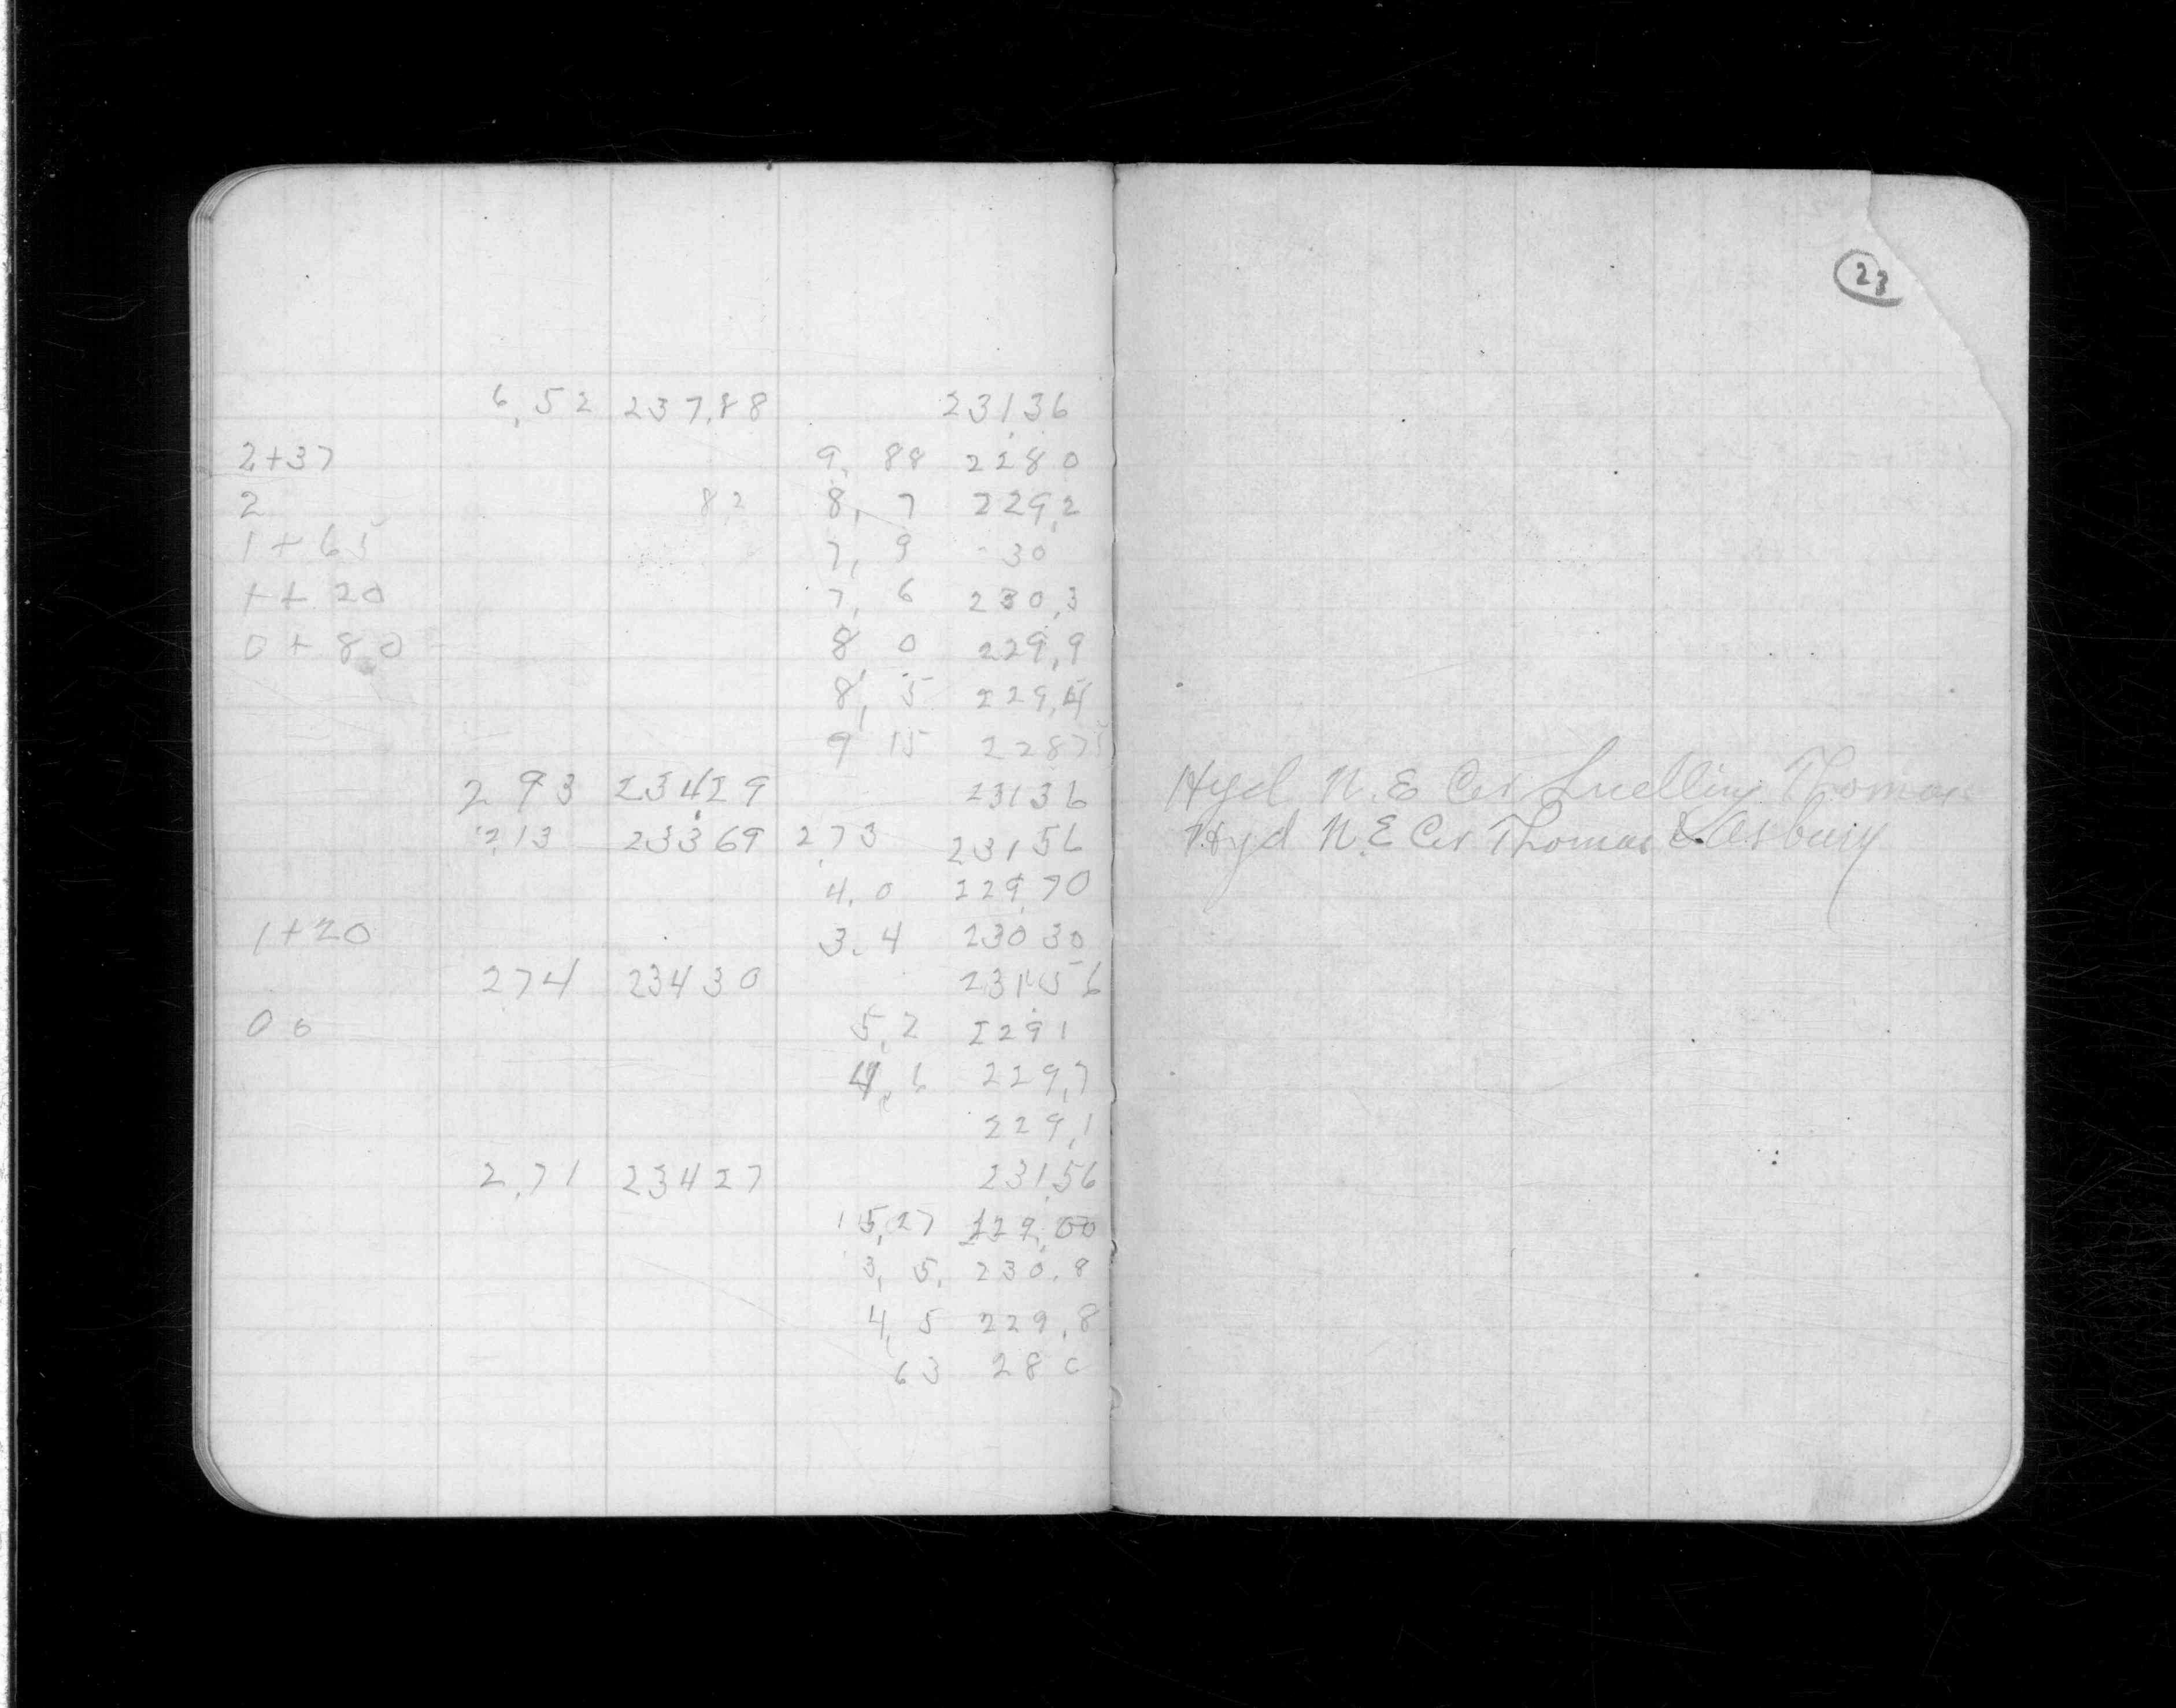 23
6,52 237,88 231,36
2+37 9,88 2280
2 82 8,7 229,2
1+65 7,9 -30
1+20 7,6 230,3
0+80 8 0 229,9
8,5 229,4
9 15 2287
2 93 234,29 23136
2,13 23369 2,73 23156
4.0 229,70
1+20 3.4 230 30
274 23430 231,56
00 5,2 2291
4,6 229,7
229,1
2,71 23427 231,56
5,27 229,00
3,5, 230.8
4,5 229,8
63 280
Hyd N.E Cor Snelling Thomas
Hyd N.E Cor Thomas & Asbury